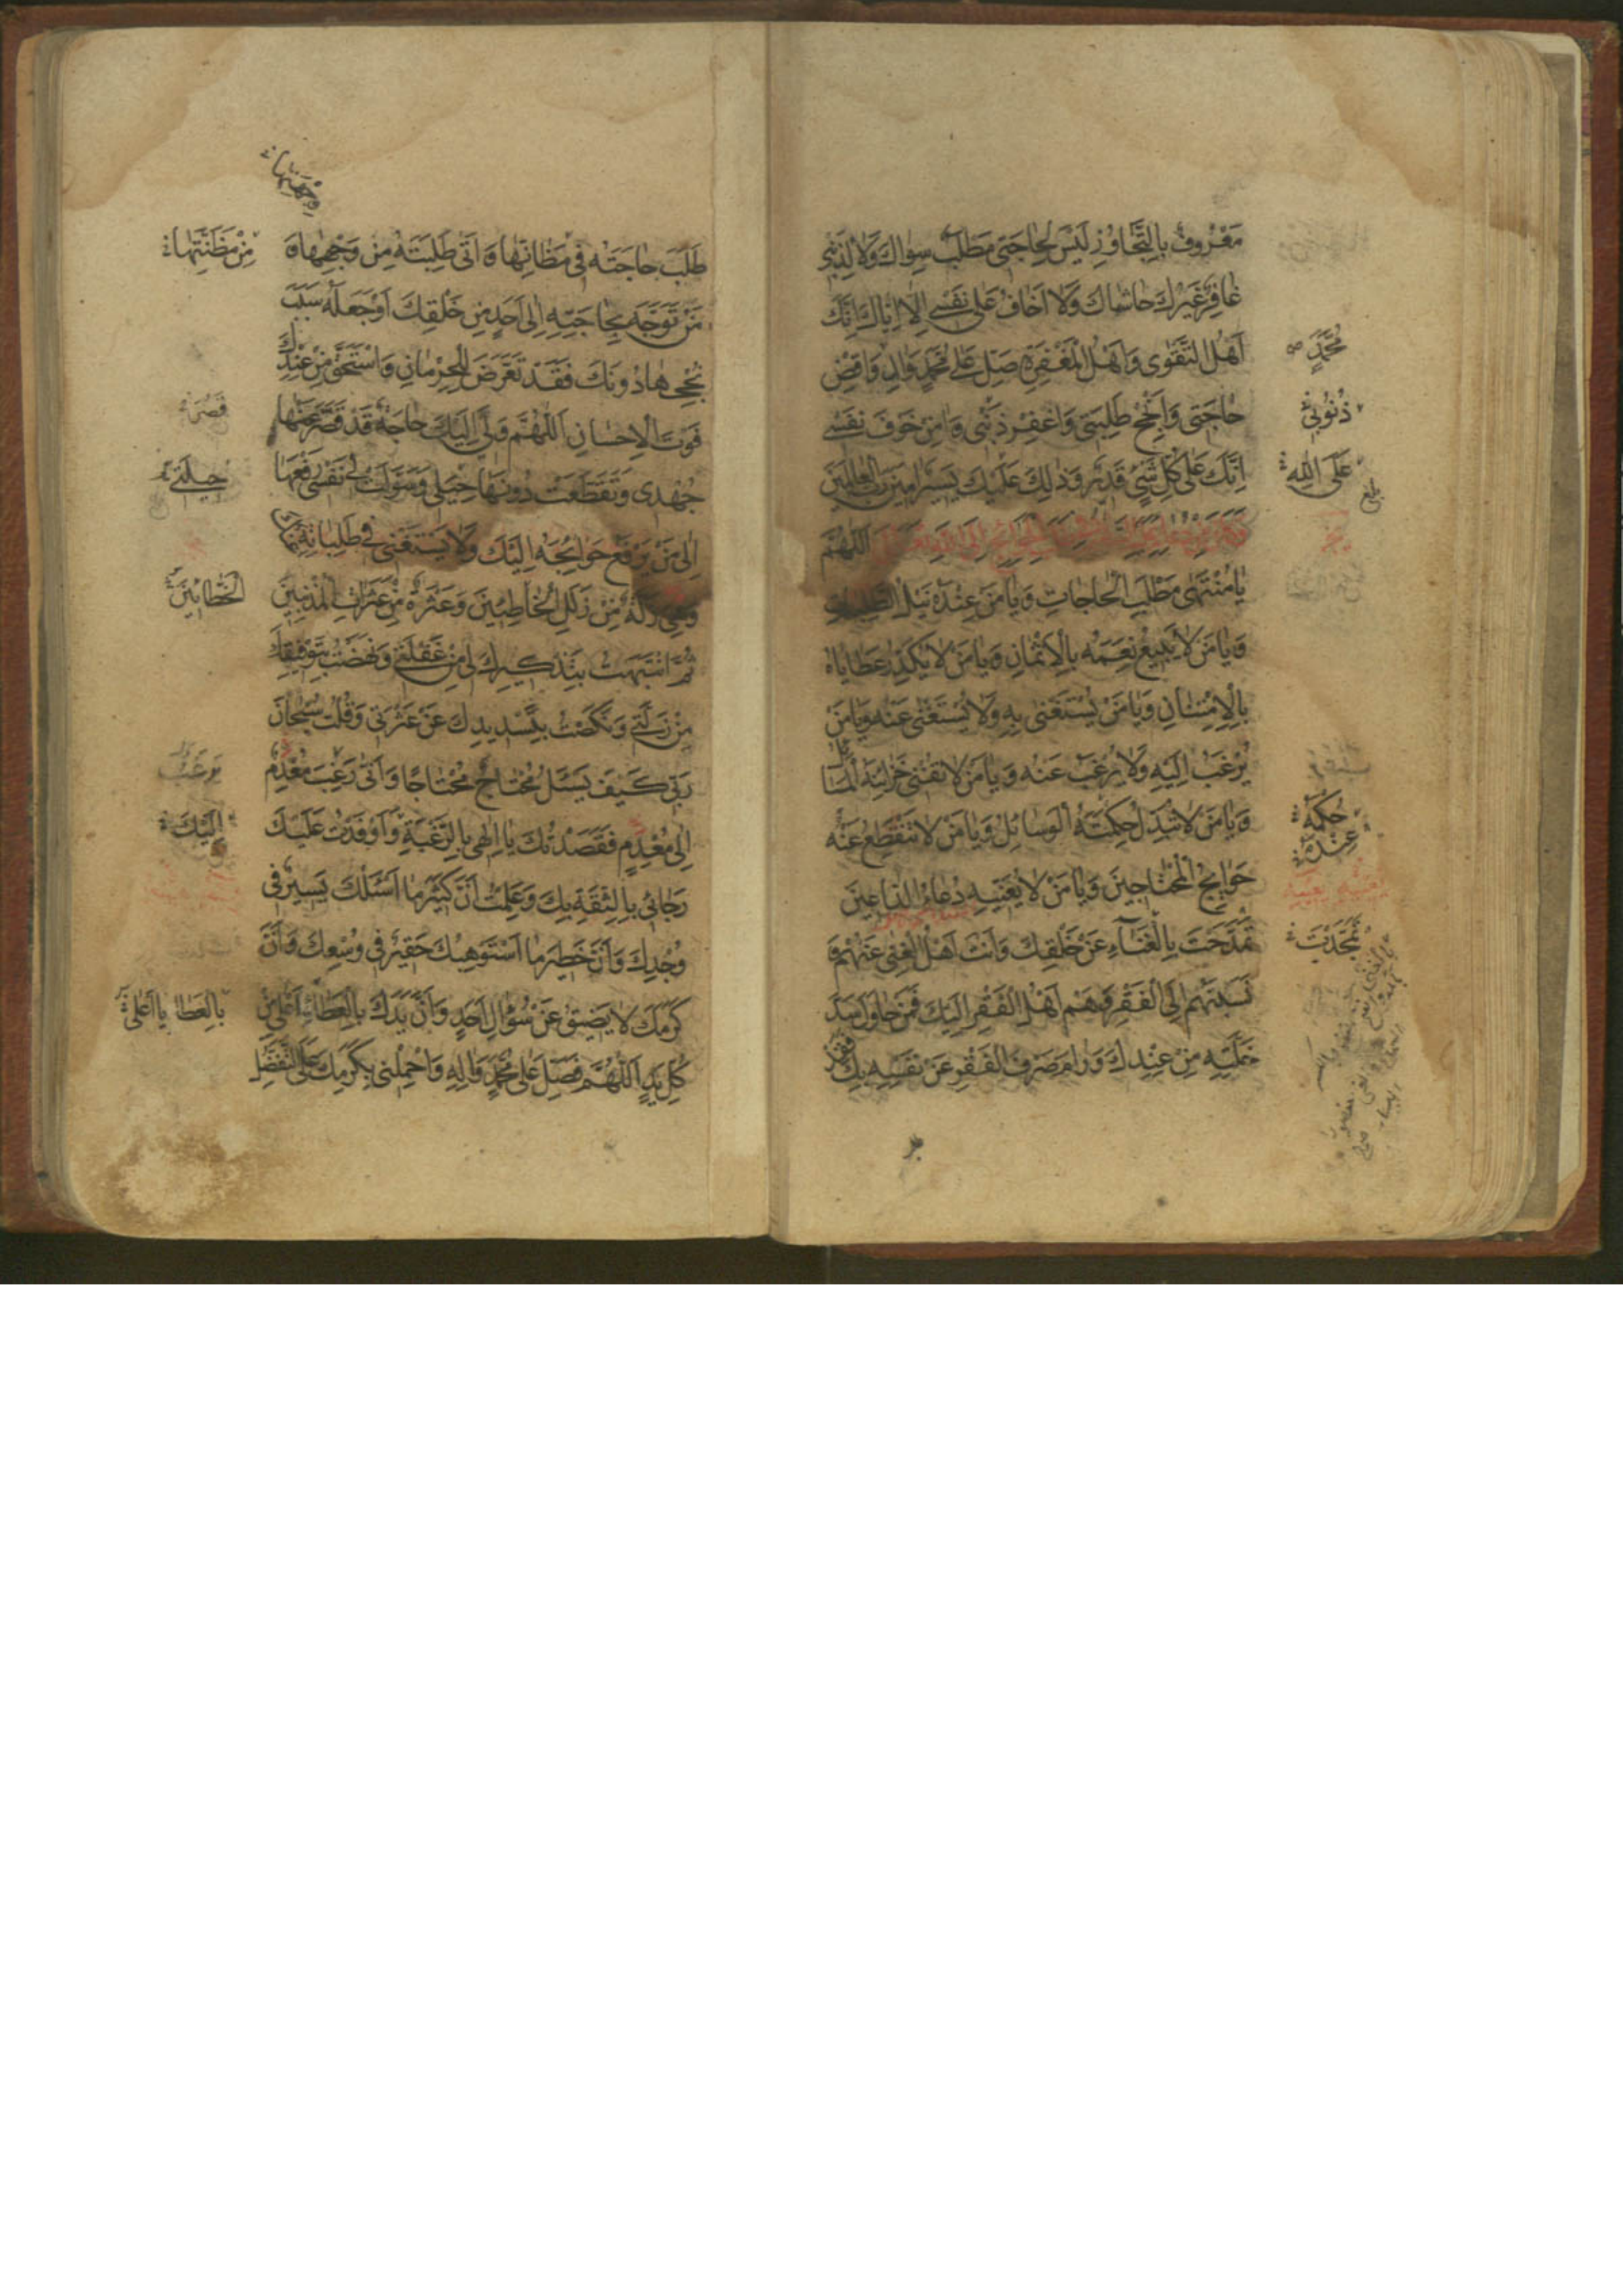 مَعْرُوفٌ بِالتَّجَاوُزِ لَيْسَ لِحَاجَتِي مَطْلَبٌ سِوَاكَ وَلَا لِذَنْبِي
غَافِرٌ غَيْرُكَ حَاشَاكَ وَلَا أَخَافُ عَلَى نَفْسِي إِلَّا إِيَّاكَ إِنَّكَ
أَهْلُ التَّقْوَى وَأَهْلُ الْمَغْفِرَةِ صَلِّ عَلَى مُحَمَّدٍ وَآلِهِ وَاقْضِ
مُحَمَّدٍ
حَاجَتِي وَأَنْجِحْ طَلِبَتِي وَاغْفِرْ ذَنْبِي وَآمِنْ خَوْفَ نَفْسِي
ذُنُوبِي
إِنَّكَ عَلَى كُلِّ شَيْءٍ قَدِيرٌ وَذَلِكَ عَلَيْكَ يَسِيرٌ آمِينَ رَبَّ الْعَالَمِينَ
عَلَى اللهِ
بلغ
اَللّهُمَّ
يَا مُنْتَهَى مَطْلَبِ الْحَاجَاتِ وَيَا مَنْ عِنْدَهُ نَيْلُ الطَّلِبَاتِ
وَيَا مَنْ لَا يَبِيعُ نِعَمَهُ بِالْأَثْمَانِ وَيَا مَنْ لَا يُكَدِّرُ عَطَايَاهُ
بِالْإِمْتِنَانِ وَيَا مَنْ يُسْتَغْنَى بِهِ وَلَا يُسْتَغْنَى عَنْهُ وَيَا مَنْ
يُرْغَبُ إِلَيْهِ وَلَا يُرْغَبُ عَنْهُ وَيَا مَنْ لَا تُفْنِي خَزَائِنَهُ الْمَسَائِلُ
وَيَا مَنْ لَا تُبَدِّلُ حِكْمَتَهُ الْوَسَائِلُ وَيَا مَنْ لَا تَنْقَطِعُ عَنْهُ
حِكَمَهُ
عِنْدَهُ
حَوَائِجُ الْمُحْتَاجِينَ وَيَا مَنْ لَا يُعَنِّيهِ دُعَاءُ الدَّاعِينَ
تَمَدَّحْتَ بِالْغَنَاءِ عَنْ خَلْقِكَ وَأَنْتَ أَهْلُ الْغِنَى عَنْهُمْ وَ
تَمَجَّدْتَ
نَسَبْتَهُمْ إِلَى الْفَقْرِ وَهُمْ أَهْلُ الْفَقْرِ إِلَيْكَ فَمَنْ حَاوَلَ سَدَّ
خَلَّتِهِ مِنْ عِنْدِكَ وَرَامَ صَرْفَ الْفَقْرِ عَنْ نَفْسِهِ بِكَ فَقَدْ
وِجْهَتِهَا
طَلَبَ حَاجَتَهُ فِي مَظَانِّهَا وَأَتَى طَلِبَتَهُ مِنْ وَجْهِهَا وَ
مِنْ مَظِنَّتِهَا
مَنْ تَوَجَّهَ بِحَاجَتِهِ إِلَى أَحَدٍ مِنْ خَلْقِكَ أَوْ جَعَلَهُ سَبَبَ
نُجْحِهَا دُونَكَ فَقَدْ تَعَرَّضَ لِلْحِرْمَانِ وَاسْتَحَقَّ مِنْ عِنْدِكَ
فَوْتَ الْإِحْسَانِ اَللّهُمَّ وَلِي إِلَيْكَ حَاجَةٌ قَدْ قَصَّرَ عَنْهَا
قَصُرَ
جُهْدِي وَتَقَطَّعَتْ دُونَهَا حِيَلِي وَسَوَّلَتْ لِي نَفْسِي رَفْعَهَا
حِيلَتِي
إِلَى مَنْ يَرْفَعُ حَوَائِجَهُ إِلَيْكَ وَلَا يَسْتَغْنِي فِي طَلِبَاتِهِ عَنْكَ
وَهِيَ زَلَّةٌ مِنْ زَلَلِ الْخَاطِئِينَ وَعَثْرَةٌ مِنْ عَثَرَاتِ الْمُذْنِبِينَ
الْخَطَّائِينَ
ثُمَّ انْتَبَهْتُ بِتَذْكِيرِكَ لِي مِنْ غَفْلَتِي وَنَهَضْتُ بِتَوْفِيقِكَ
مِنْ زَلَّتِي وَنَكَصْتُ بِتَسْدِيدِكَ عَنْ عَثْرَتِي وَقُلْتُ سُبْحَانَ
رَبِّي كَيْفَ يَسْئَلُ مُحْتَاجٌ مُحْتَاجًا وَأَنَّى رَغِبَ مُعْدِمٌ
يَرْغَبُ
إِلَى مُعْدِمٍ فَقَصَدْتُكَ يَا إِلهِي بِالرَّغْبَةِ وَأَوْفَدْتُ عَلَيْكَ
إِلَيْكَ
رَجَائِي بِالثِّقَةِ بِكَ وَعَلِمْتُ أَنَّ كَثِيرَ مَا أَسْئَلُكَ يَسِيرٌ فِي
وُجْدِكَ وَأَنَّ خَطِيرَ مَا أَسْتَوْهِبُكَ حَقِيرٌ فِي وُسْعِكَ وَأَنَّ
كَرَمَكَ لَا يَضِيقُ عَنْ سُؤَالِ أَحَدٍ وَأَنَّ يَدَكَ بِالْعَطَاءِ أَعْلَى مِنْ
بِالْعَطَايَا أَعْلَى
كُلِّ يَدٍ اَللّهُمَّ فَصَلِّ عَلَى مُحَمَّدٍ وَآلِهِ وَاحْمِلْنِي بِكَرَمِكَ عَلَى التَّفَضُّلِ